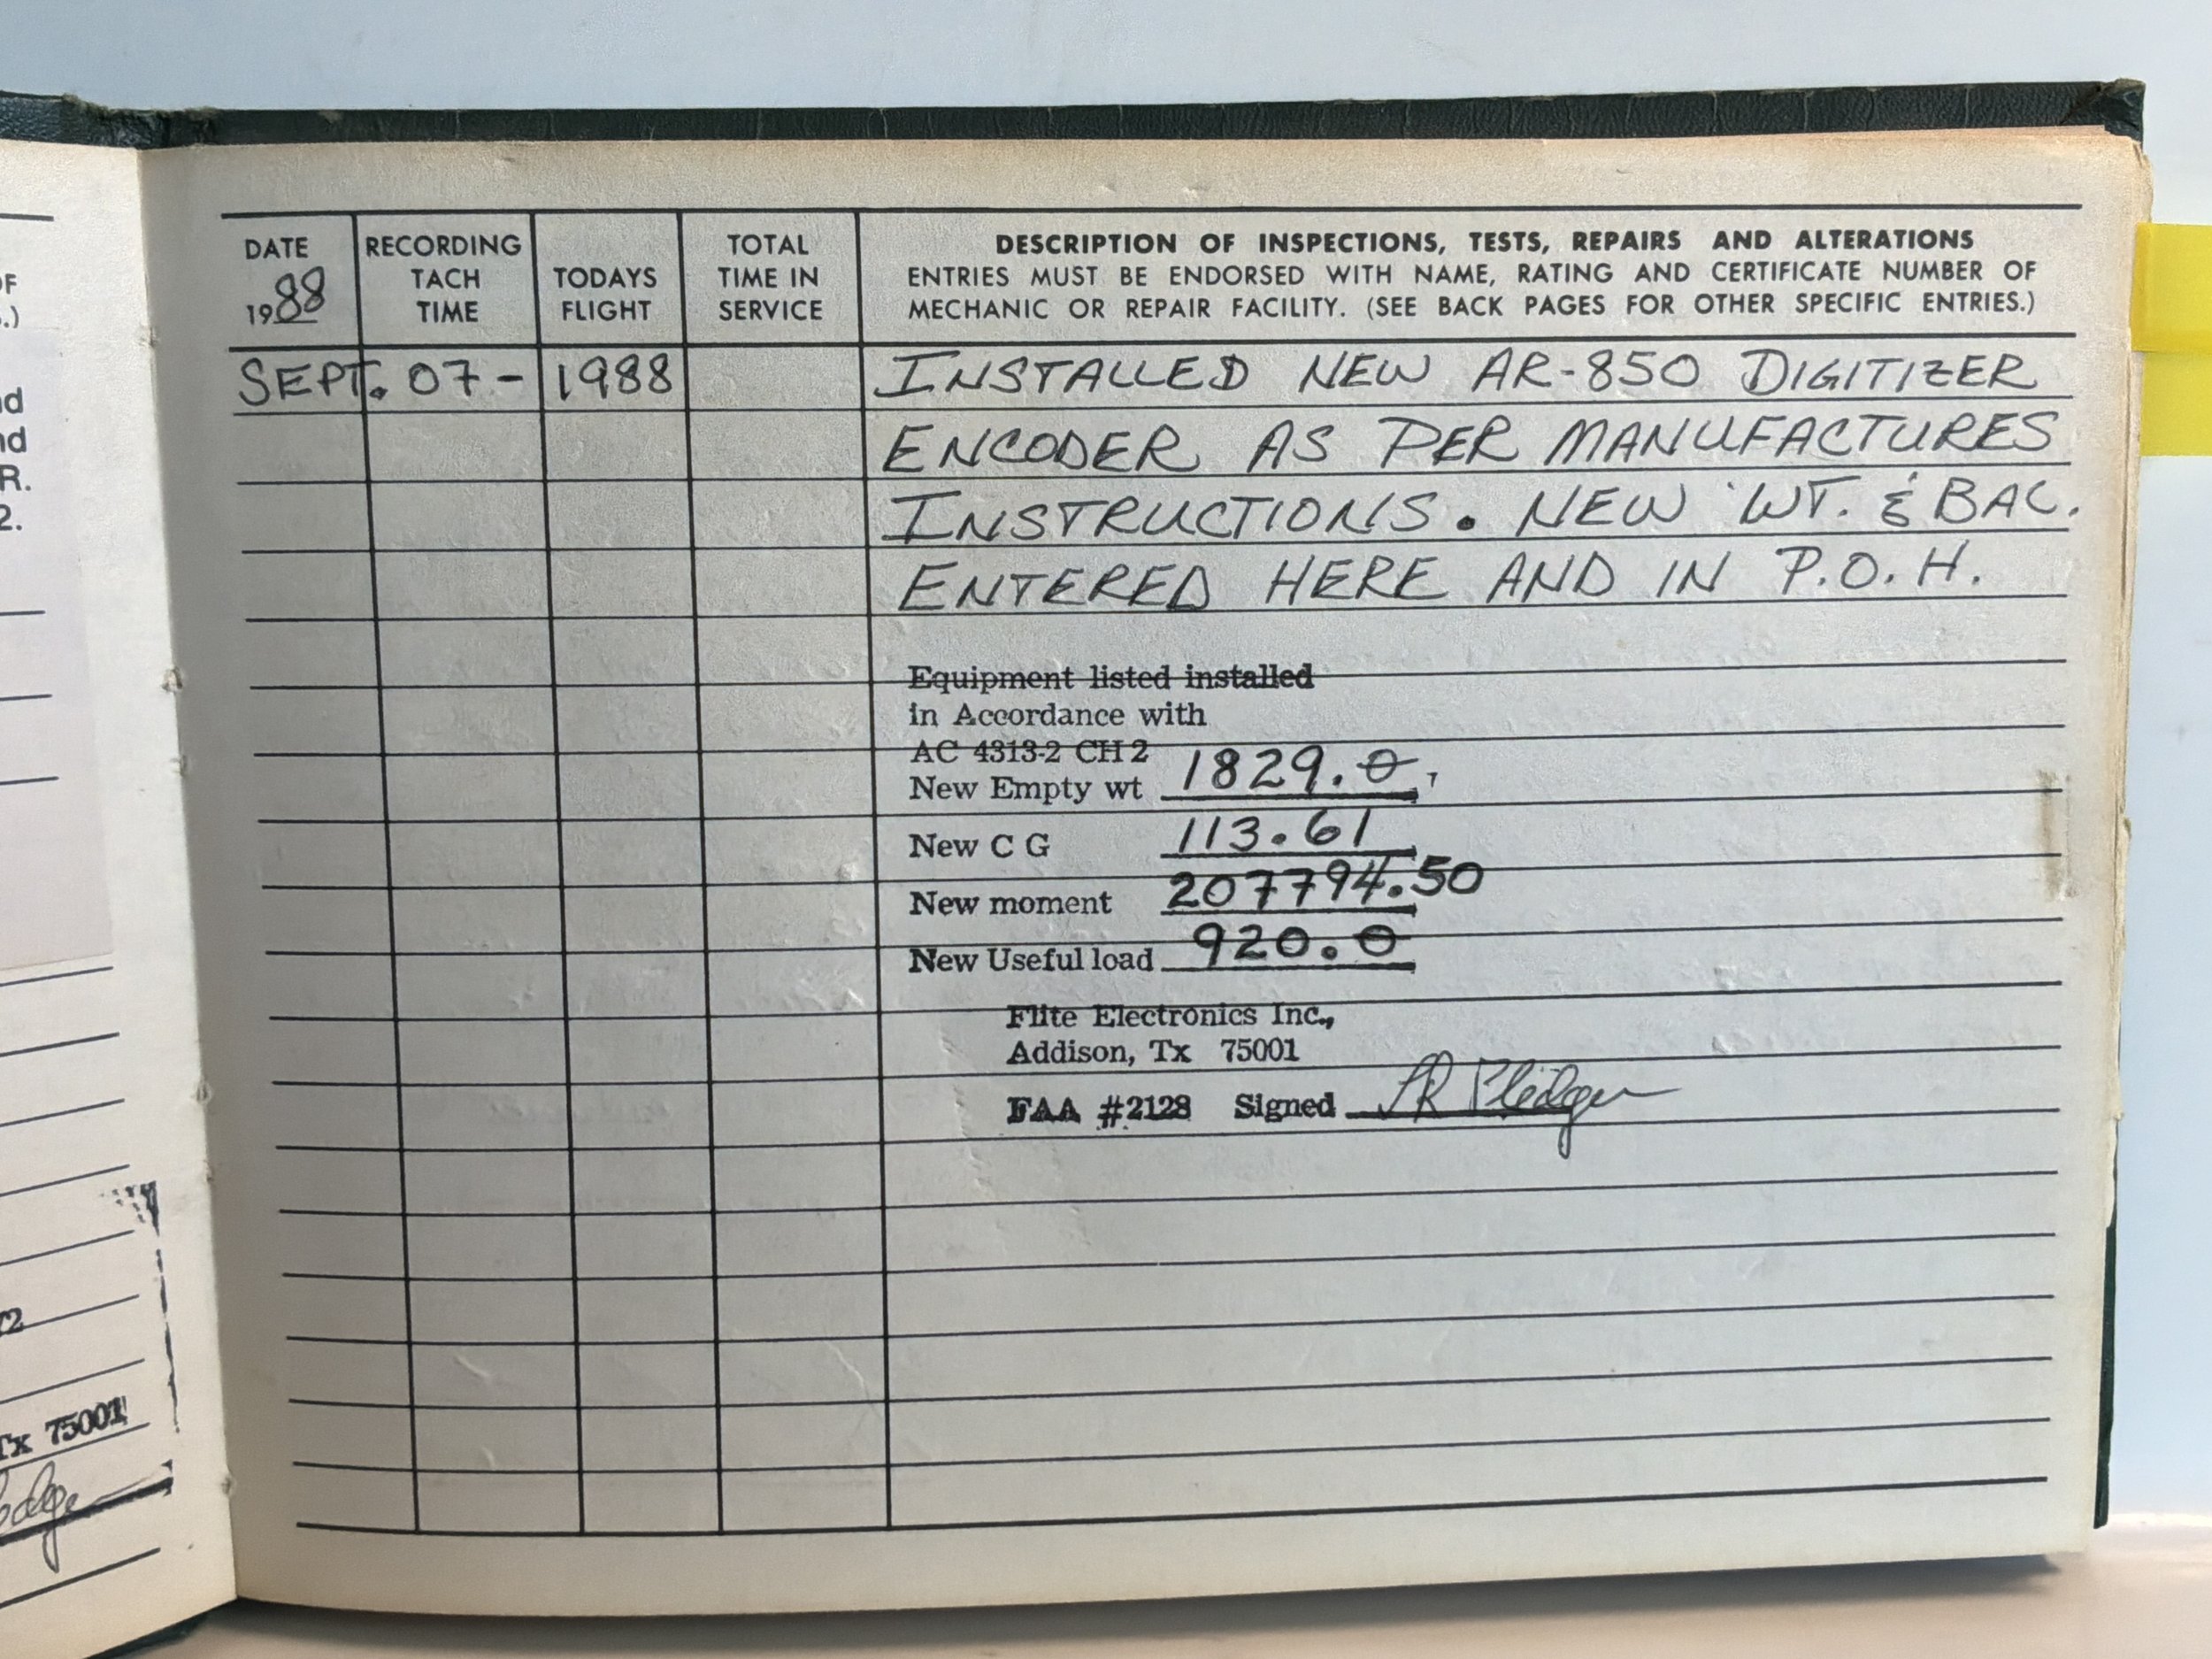 F
.)
nd
nd
R.
2.
72
Tx 75001
DATE
1988
RECORDING
TACH
TIME
TODAYS
FLIGHT
TOTAL
TIME IN
SERVICE
DESCRIPTION OF INSPECTIONS, TESTS, REPAIRS AND ALTERATIONS
ENTRIES MUST BE ENDORSED WITH NAME, RATING AND CERTIFICATE NUMBER OF
MECHANIC OR REPAIR FACILITY. (SEE BACK PAGES FOR OTHER SPECIFIC ENTRIES.)
SEPT. 07 - 1988 INSTALLED NEW AR-850 DIGITIZER
ENCODER AS PER MANUFACTURES
INSTRUCTIONS. NEW WT. & BAL.
ENTERED HERE AND IN P.O.H.
Equipment listed installed
in Accordance with
AC 4313-2 CH 2
New Empty wt 1829.0
New C G 113.61
New moment 207794.50
New Useful load 920.0
Flite Electronics Inc.,
Addison, Tx 75001
FAA #2128 Signed JR Pledger